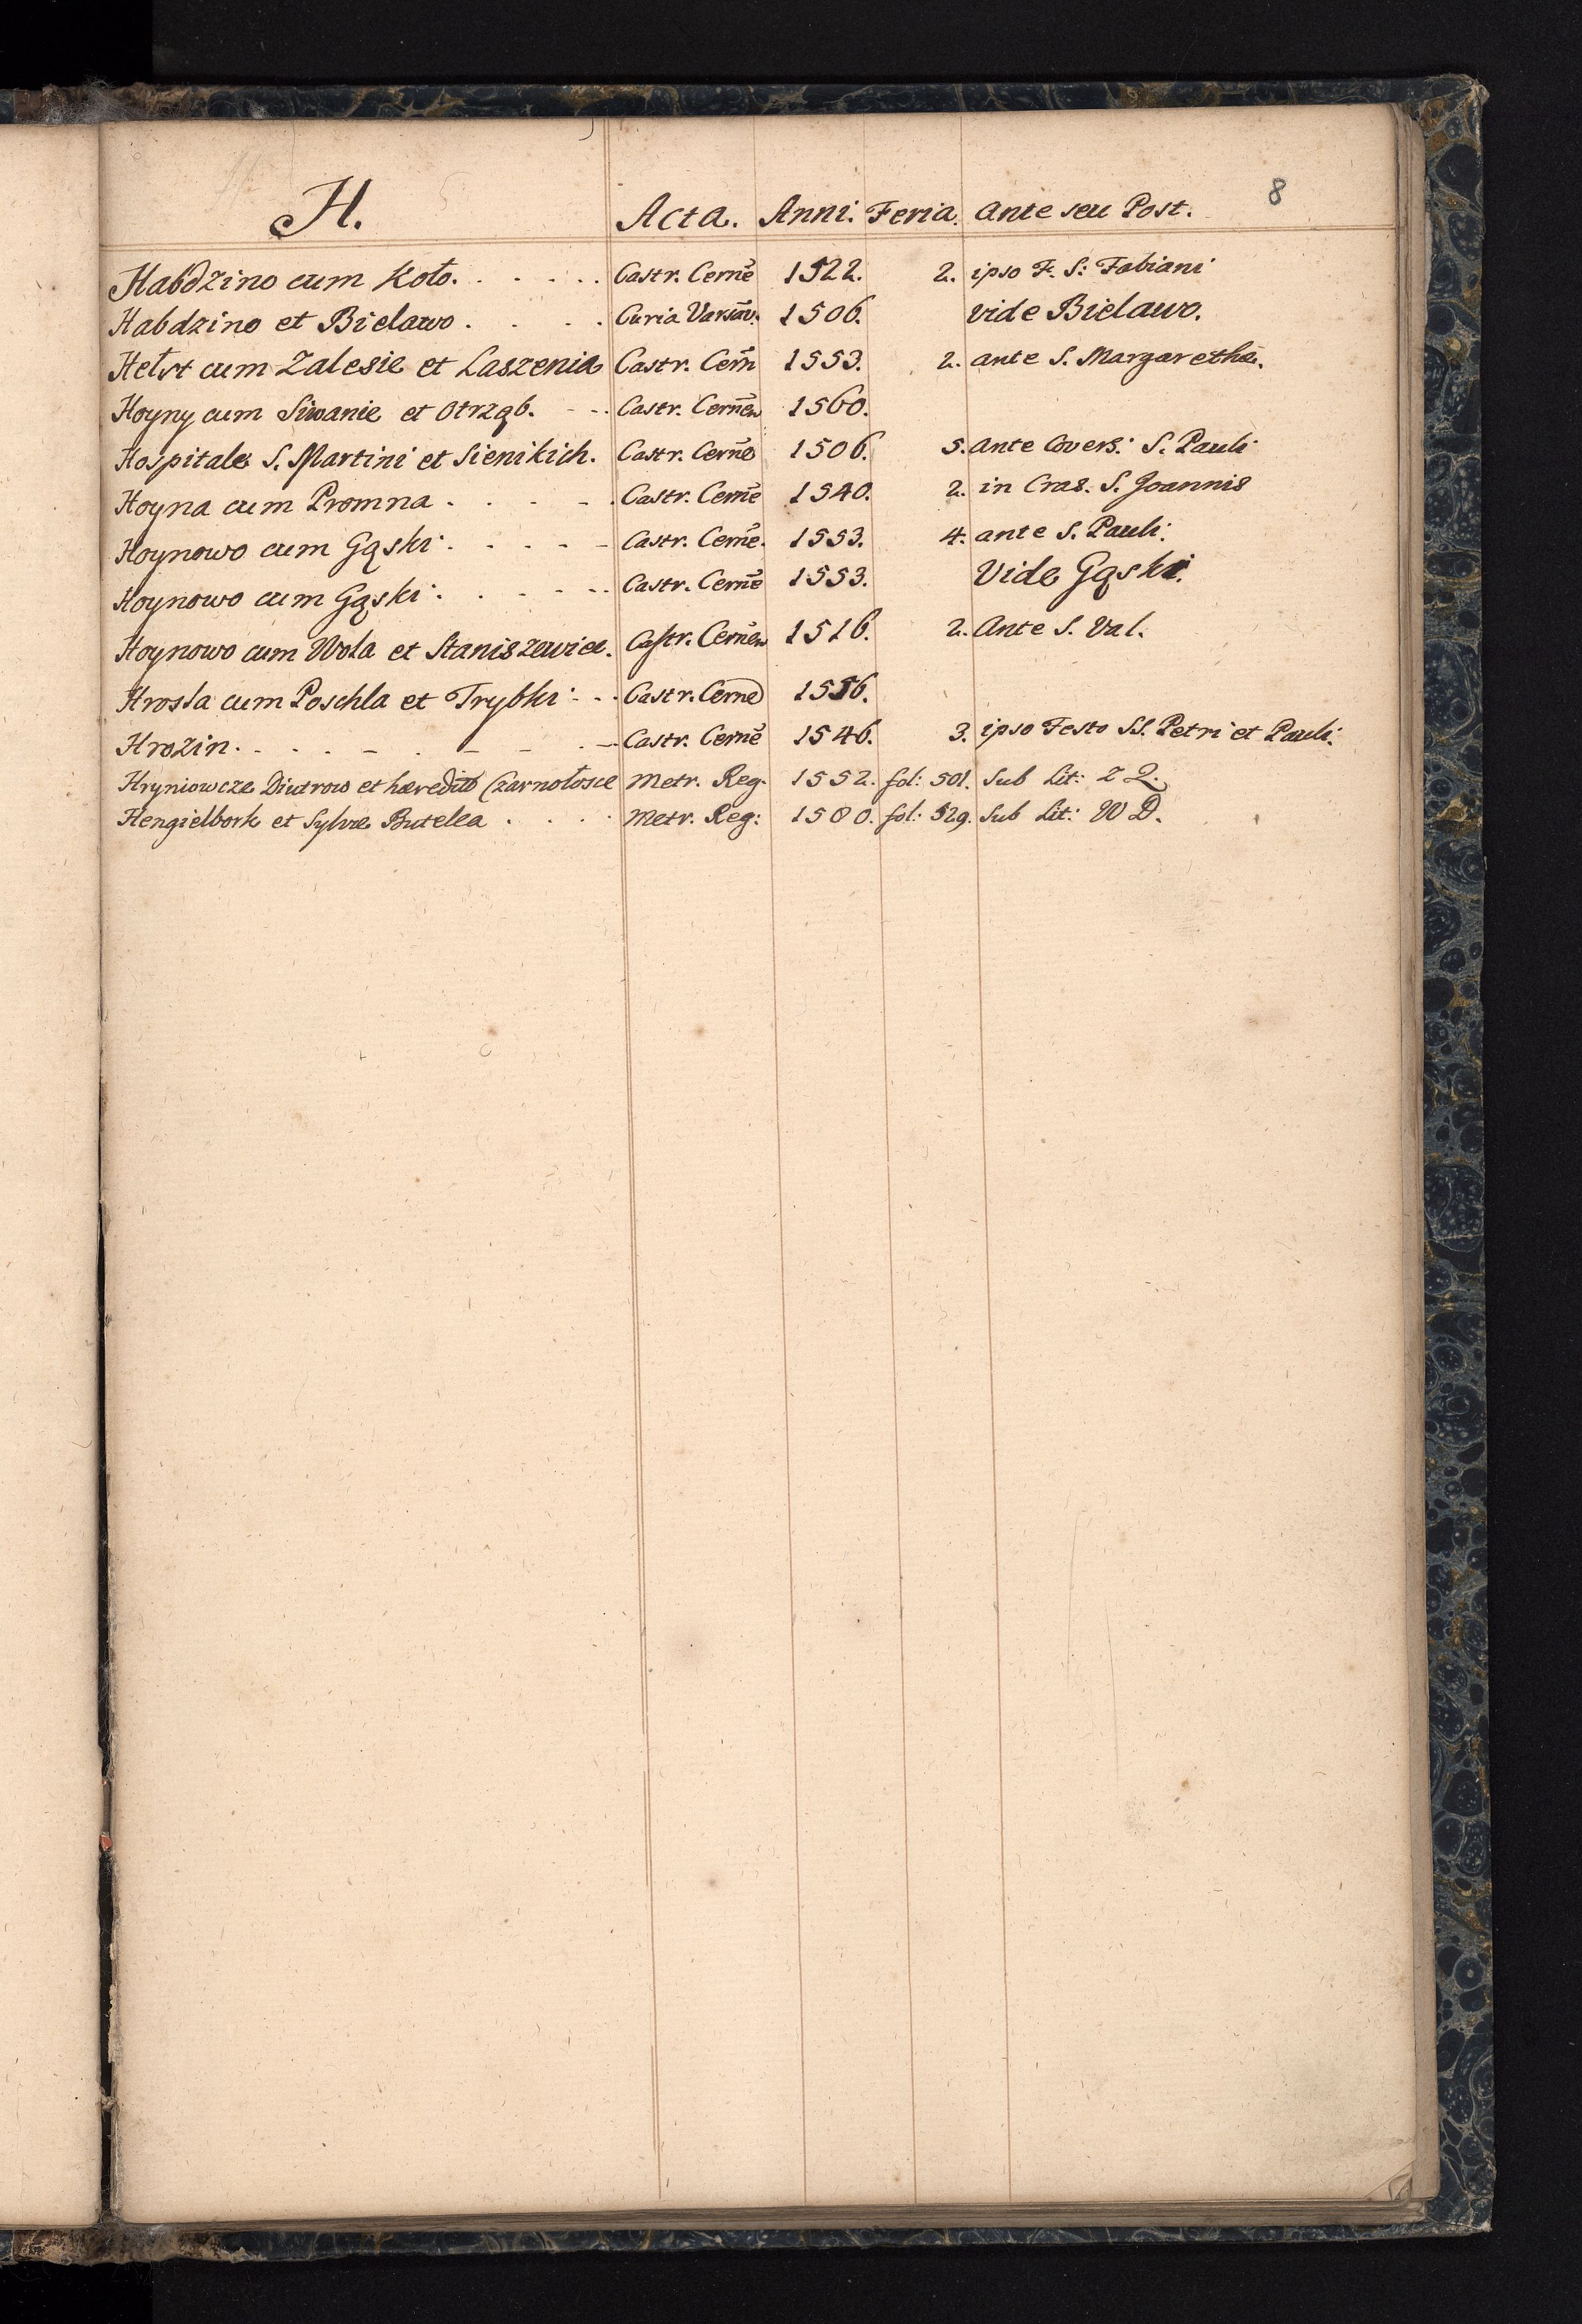 8
H. Acta. Anni. Feria. Ante seu Post.
Habdzino cum Koło. Castr. Cernē 1522. 2. ipso F. S: Fabiani
Habdzino et Bielawo. Curia Varsav: 1506. vide Bielawo.
Hełst cum Zalesie et Laszenia Castr. Cern̄ 1553. 2. ante S. Margarethā.
Hoyny cum Siwanie et Otrząb. Castr. Cernēn 1560.
Hospitale S. Martini et Sienikich. Castr. Cernē 1506. 5. Ante Covers: S. Pauli
Hoyna cum Promna. Castr. Cernē 1540. 2. in Cras. S. Joannis
Hoynowo cum Gąski. Castr. Cernē. 1553. 4. ante S. Pauli.
Hoynowo cum Gąski. Castr. Cernē 1553. Vide Gąski.
Hoynowo cum Wola et Staniszewice. Castr. Cernēn 1516. 2. Ante S. Val.
Hrosla cum Poschla et Trybki Castr. Cerne 1556.
Hrozin. Castr. Cernē 1546. 3. ipso Festo SS. Petri et Pauli.
Hryniowcze Diutrow et hæredit Czarnołosce Metr. Reg. 1552. fol: 501. Sub Lit: Z Q.
Hengielbork et Sylvæ Butelea Metr. Reg: 1580. fol: 529. Sub Lit: W D.